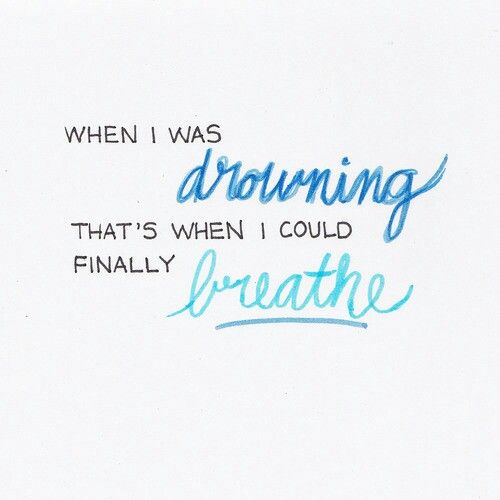 WHEN I WAS
drowning
THAT'S WHEN I COULD
FINALLY breathe